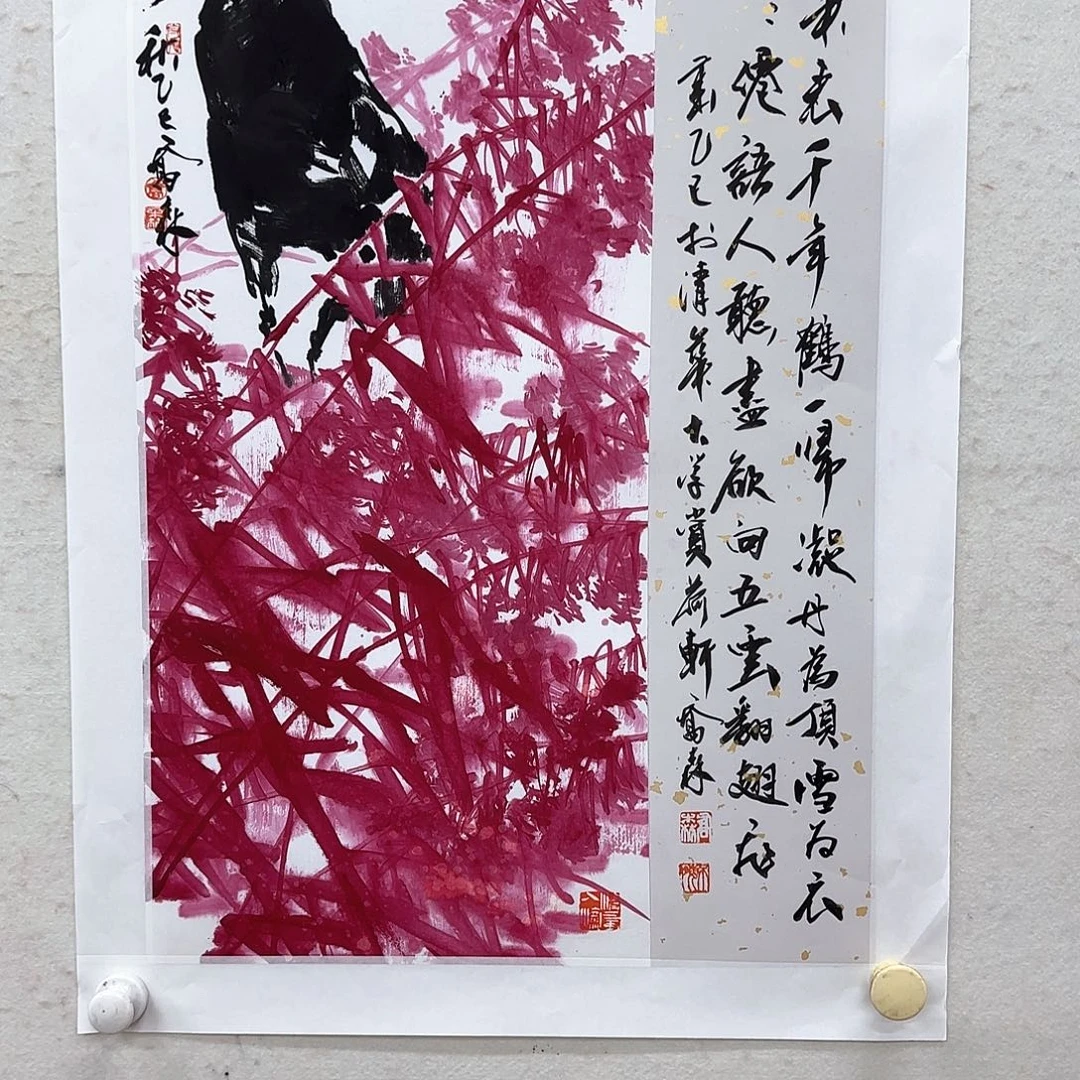 表千年鶴一歸凝丹為頂雪为衣
僊語人聽盡欲向五雲翻翅飛
歲乙巳於清華大学賞荷軒高森
秋乙巳高森